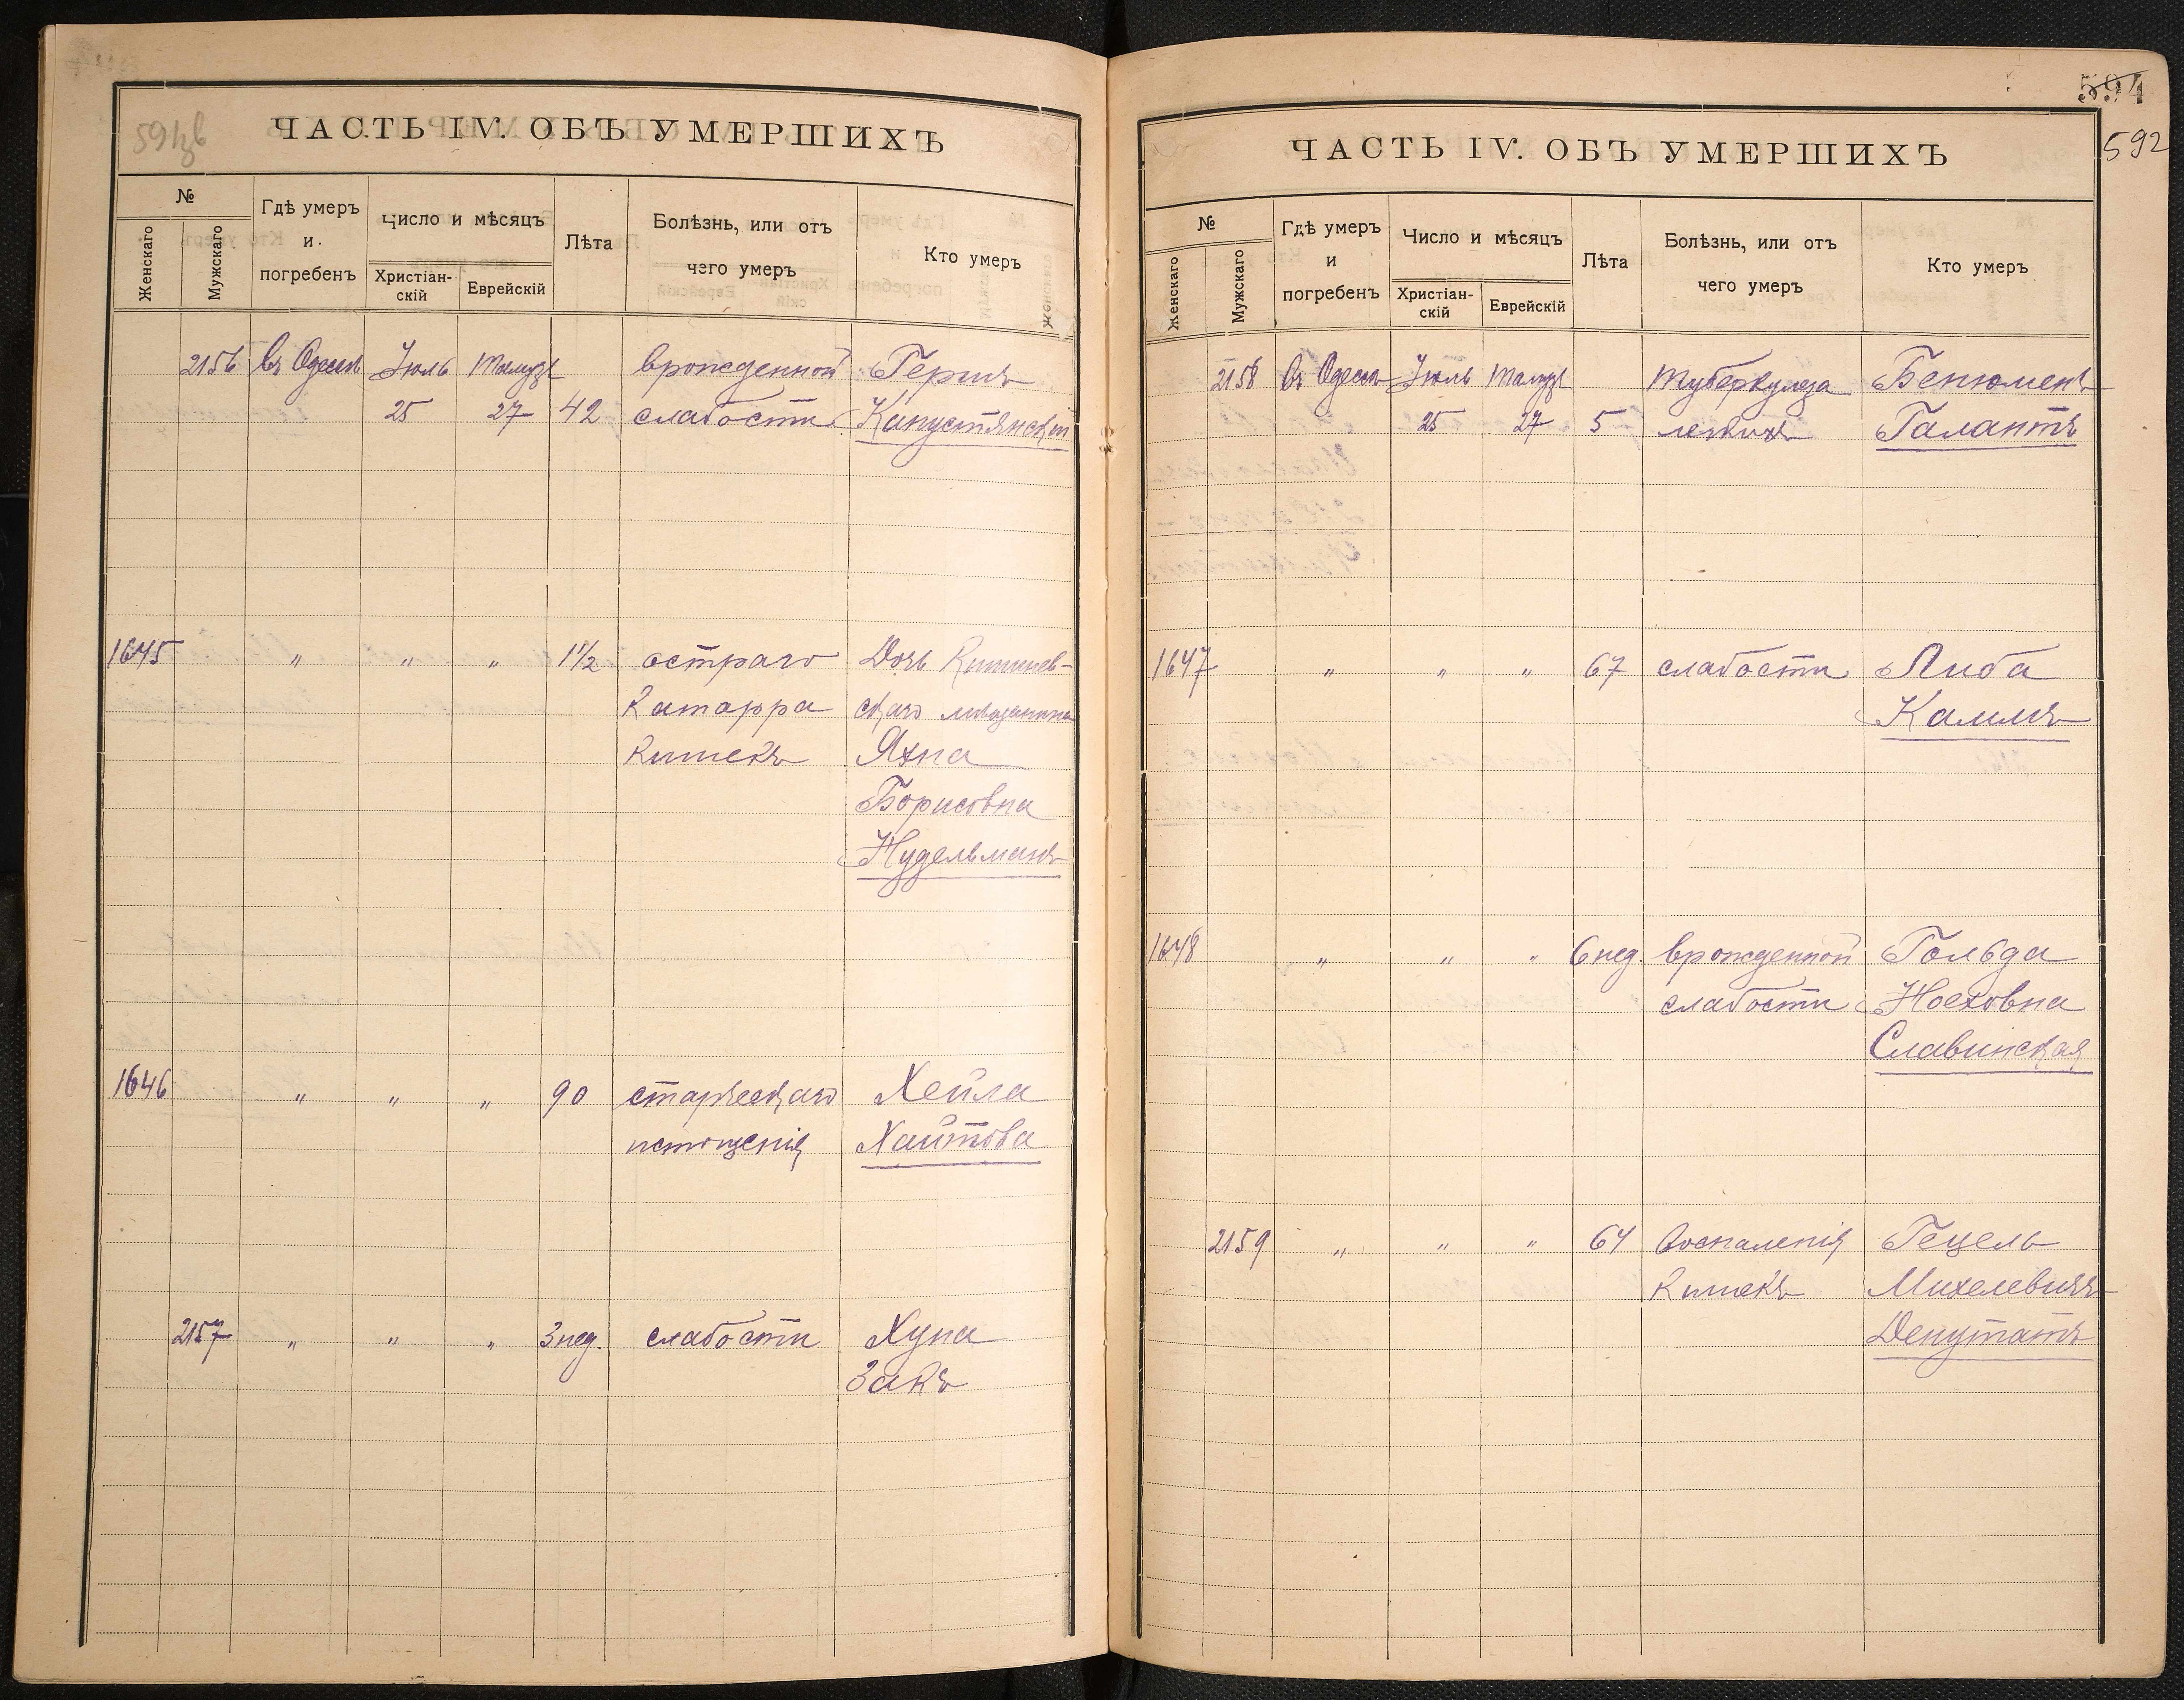 591об
ЧАСТЬ IV. ОБЪ УМЕРШИХЪ
№
Женскаго
Мужскаго
Гдѣ умеръ
и
погребенъ
Число и мѣсяцъ
Христіан-
скій
Еврейскій
Лѣта
Болѣзнь, или отъ
чего умеръ
Кто умеръ
2156 въ Одессѣ Іюль Тамузъ врожденной Гершъ
25 27 42 слабости Капустянскій
1645 " " " 1 1/2 остраго Дочь Кишинев-
катарра скаго мѣщанина
кишекъ Яхна
Борисовна
Нудельманъ
1646 " " " 90 старческаго Хейла
истощенія Хаитова
2157 " " " 3 нед. слабости Хуна
Закъ
594
592
ЧАСТЬ IV. ОБЪ УМЕРШИХЪ
№
Женскаго
Мужскаго
Гдѣ умеръ
и
погребенъ
Число и мѣсяцъ
Христіан-
скій
Еврейскій
Лѣта
Болѣзнь, или отъ
чего умеръ
Кто умеръ
2158 въ Одессѣ Іюль Тамузъ туберкулеза Бенюменъ
25 27 5 легкихъ Галантъ
1647 " " " 67 слабости Либа
Калмъ
1648 " " " 6 нед. врожденной Гольда
слабости Ноеховна
Славинская
2159 " " " 64 Воспаленія Гецель
кишекъ Михелевичъ
Депутатъ